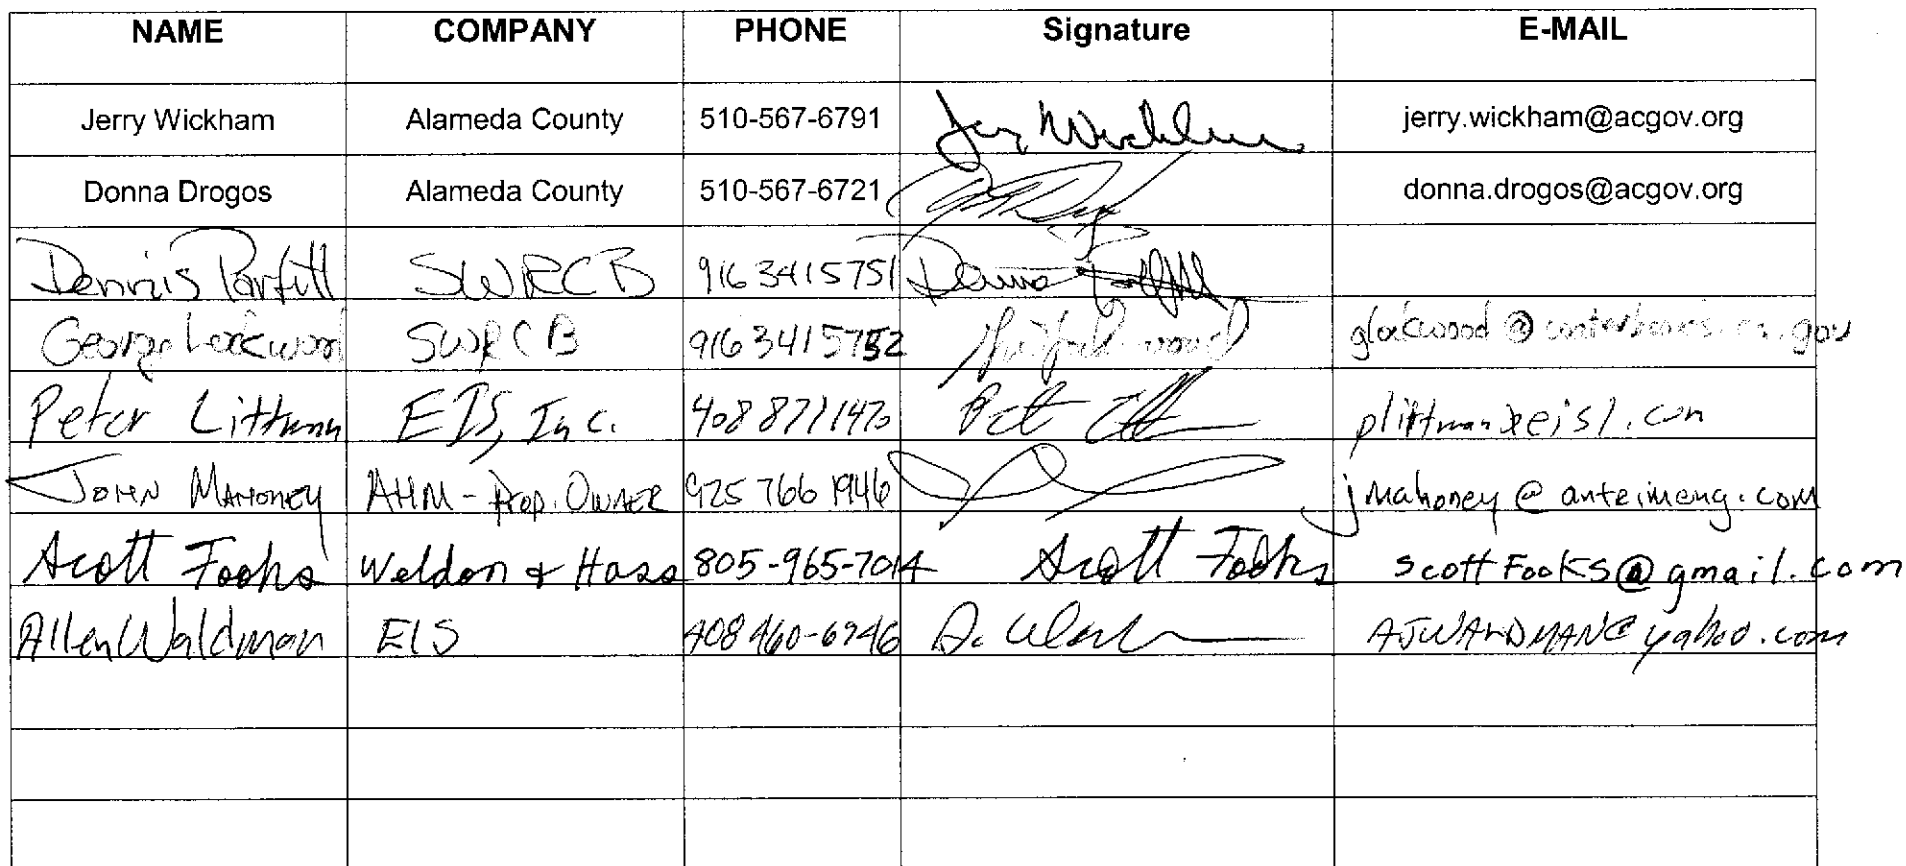 NAME COMPANY PHONE Signature E-MAIL
Jerry Wickham Alameda County 510-567-6791 Jerry Wickham jerry.wickham@acgov.org
Donna Drogos Alameda County 510-567-6721 donna.drogos@acgov.org
Dennis Parfitt SWRCB 916 341 5751 Dennis Parfitt
George Lockwood SWRCB 916 341 5752 glockwood @ waterboards.ca.gov
Peter Littman EIS, Inc. 408 871 1470 plittman@eis1.com
John Mahoney AHM - Prop. Owner 925 766 1946 jmahoney @ anteimeng.com
Scott Fooks Weldon & Hass 805-965-7014 Scott Fooks scottFooks@gmail.com
Allen Waldman EIS 408 460-6746 AJWALDMAN@yahoo.com